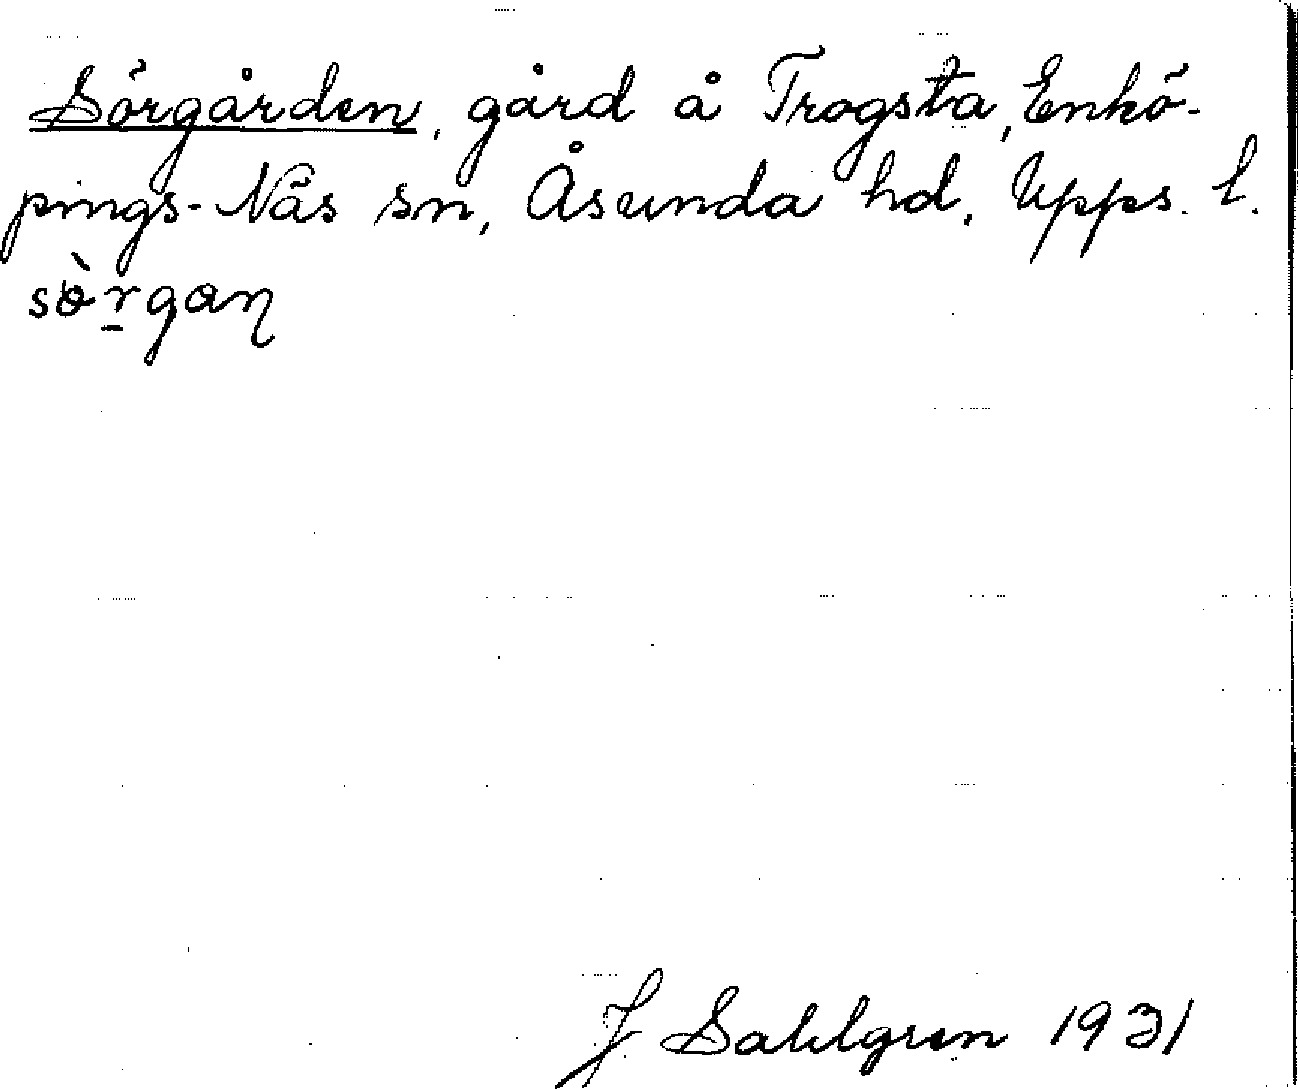 Sörgården, gård å Trogsta, Enkö-
pings-Näs sn, Åsunda hd, Upps. l.
sòrgaɳ
J Sahlgren 1931